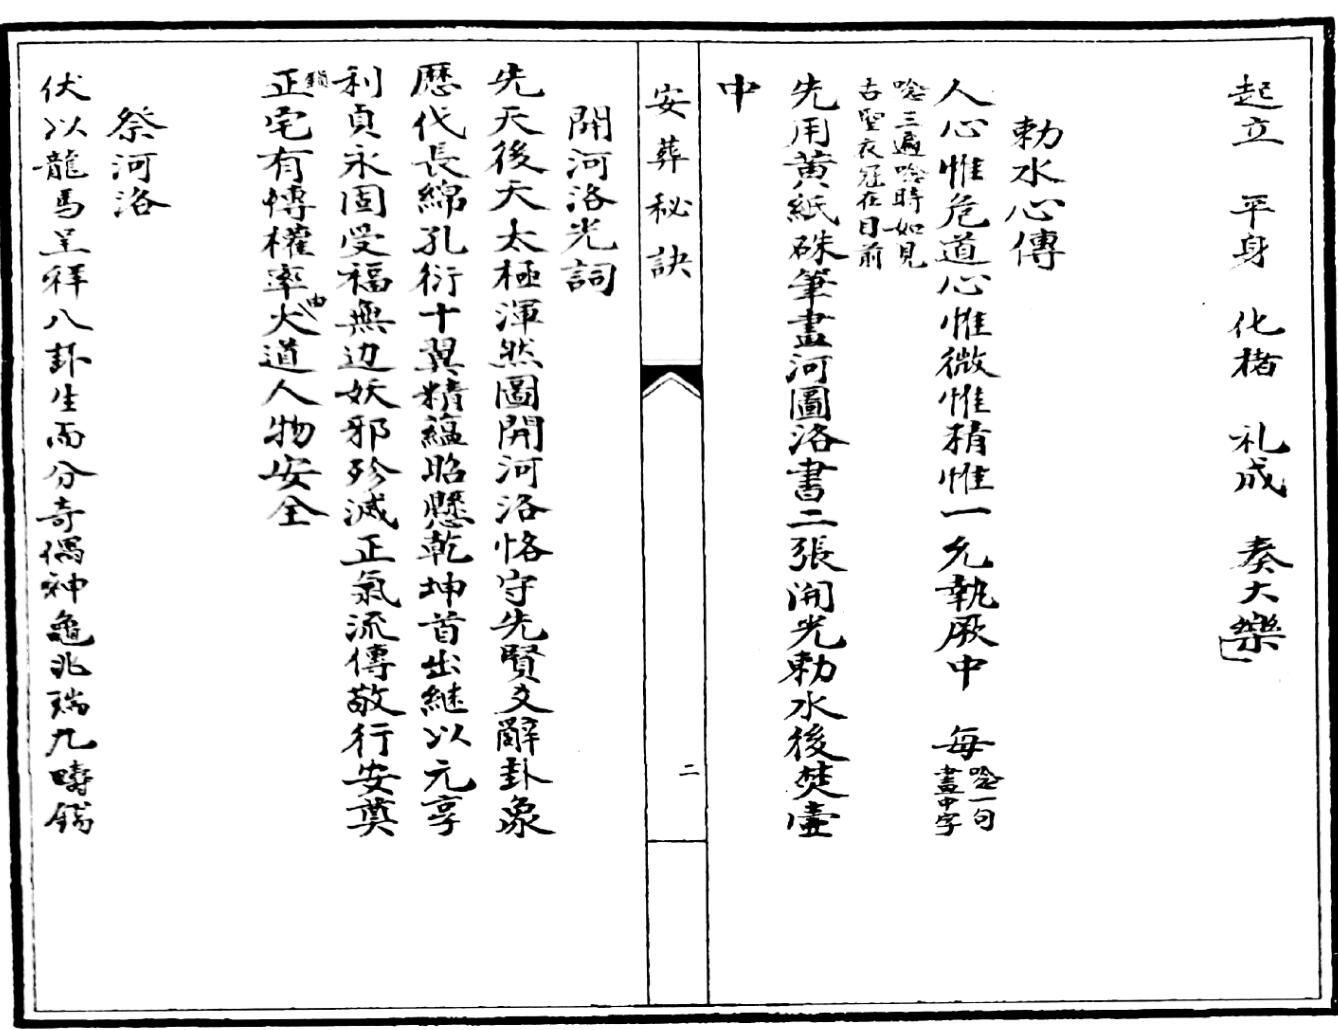 起立　平身　化楮　礼成　奏大樂
勅水心傳
人心惟危道心惟微惟精惟一允執厥中　每唸一句畫中字
唸三遍唸時如見
古聖衣冠在目前
先用黄紙硃筆畫河圖洛書二張開光勅水後焚壷
中
安葬秘訣
二
開河洛光詞
先天後天太極渾然圖開河洛恪守先賢爻辭卦象
歷代長綿孔衍十翼精蘊昭懸乾坤首出継以元享
利貞永固受福無边妖邪殄滅正氣流傳敬行安奠
正宅有愽權率大道人物安全
祭河洛
伏以龍馬呈祥八卦生而分奇偶神龜兆瑞九疇錫